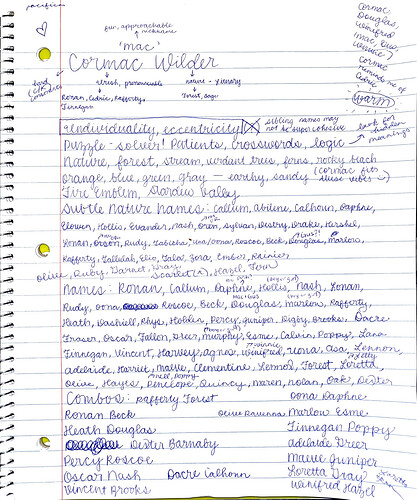 pacifica
fun, approachable
nickname
'mac'
Cormac Wilder
Irish, pronounceable
nature - literary
Ronan, Cedric, Rafferty,
Finnegan
Forest, Sage
Cormac
Douglas,
Winifred
(mac, Gus,
Winnie)
Cormac
reminds me of
Cedric
warm
Individuality, eccentricity
sibling names may
not be super cohesive
look for
hidden
meanings
Puzzle-solver! Patients, crosswords, logic
Nature, forest, stream, verdant trees, ferns, rocky beach
orange, blue, green, gray — earthy, sandy (Cormac fits
these vibes)
Fire Emblem, Stardew Valley
Subtle nature names: Callum, Abilene, Calhoun, Daphne,
Hollis, Evander, Nash, Oren, Sylvan, Destry, Drake, Hershel,
Ronan, Orson, Rudy, Tabitha, Una/Oona, Roscoe, Beck, Douglas, Marlowe,
Rafferty, Tallulah, Elio, Talia, Zora, Ember, Rainier
Olive, Ruby, Garnet, Gray
Scarlett, Hazel, Fern
Names: Ronan, Callum, Daphne, Hollis, Nash, Conan,
Rudy, Oona, Roscoe, Beck, Douglas, Marlowe, Rafferty,
Heath, Dashiell, Rhys, Holden, Percy, Juniper, Rigby, Brooks, Dacre
Fraser, Oscar, Fallon, Greer, Murphy, Esme, Calvin, Poppy, Lana
Finnegan, Vincent, Harvey, Agnes, Winifred, Fiona, Asa, Lennon,
Adelaide, Harriet, Maeve, Clementine, Lennox, Forest, Loretta,
Olive, Hayes, Penelope, Quincy, Maren, Nolan, Oak, Dexter
Combos: Rafferty Forest
Oona Daphne
Ronan Beck
Olive Ravenna
Marlow Esme
Heath Douglas
Finnegan Poppy
Dexter Barnaby
Adelaide Greer
Percy Roscoe
Maeve Juniper
Oscar Nash
Dacre Calhoun
Loretta Gray
Vincent Brooks
Winifred Hazel